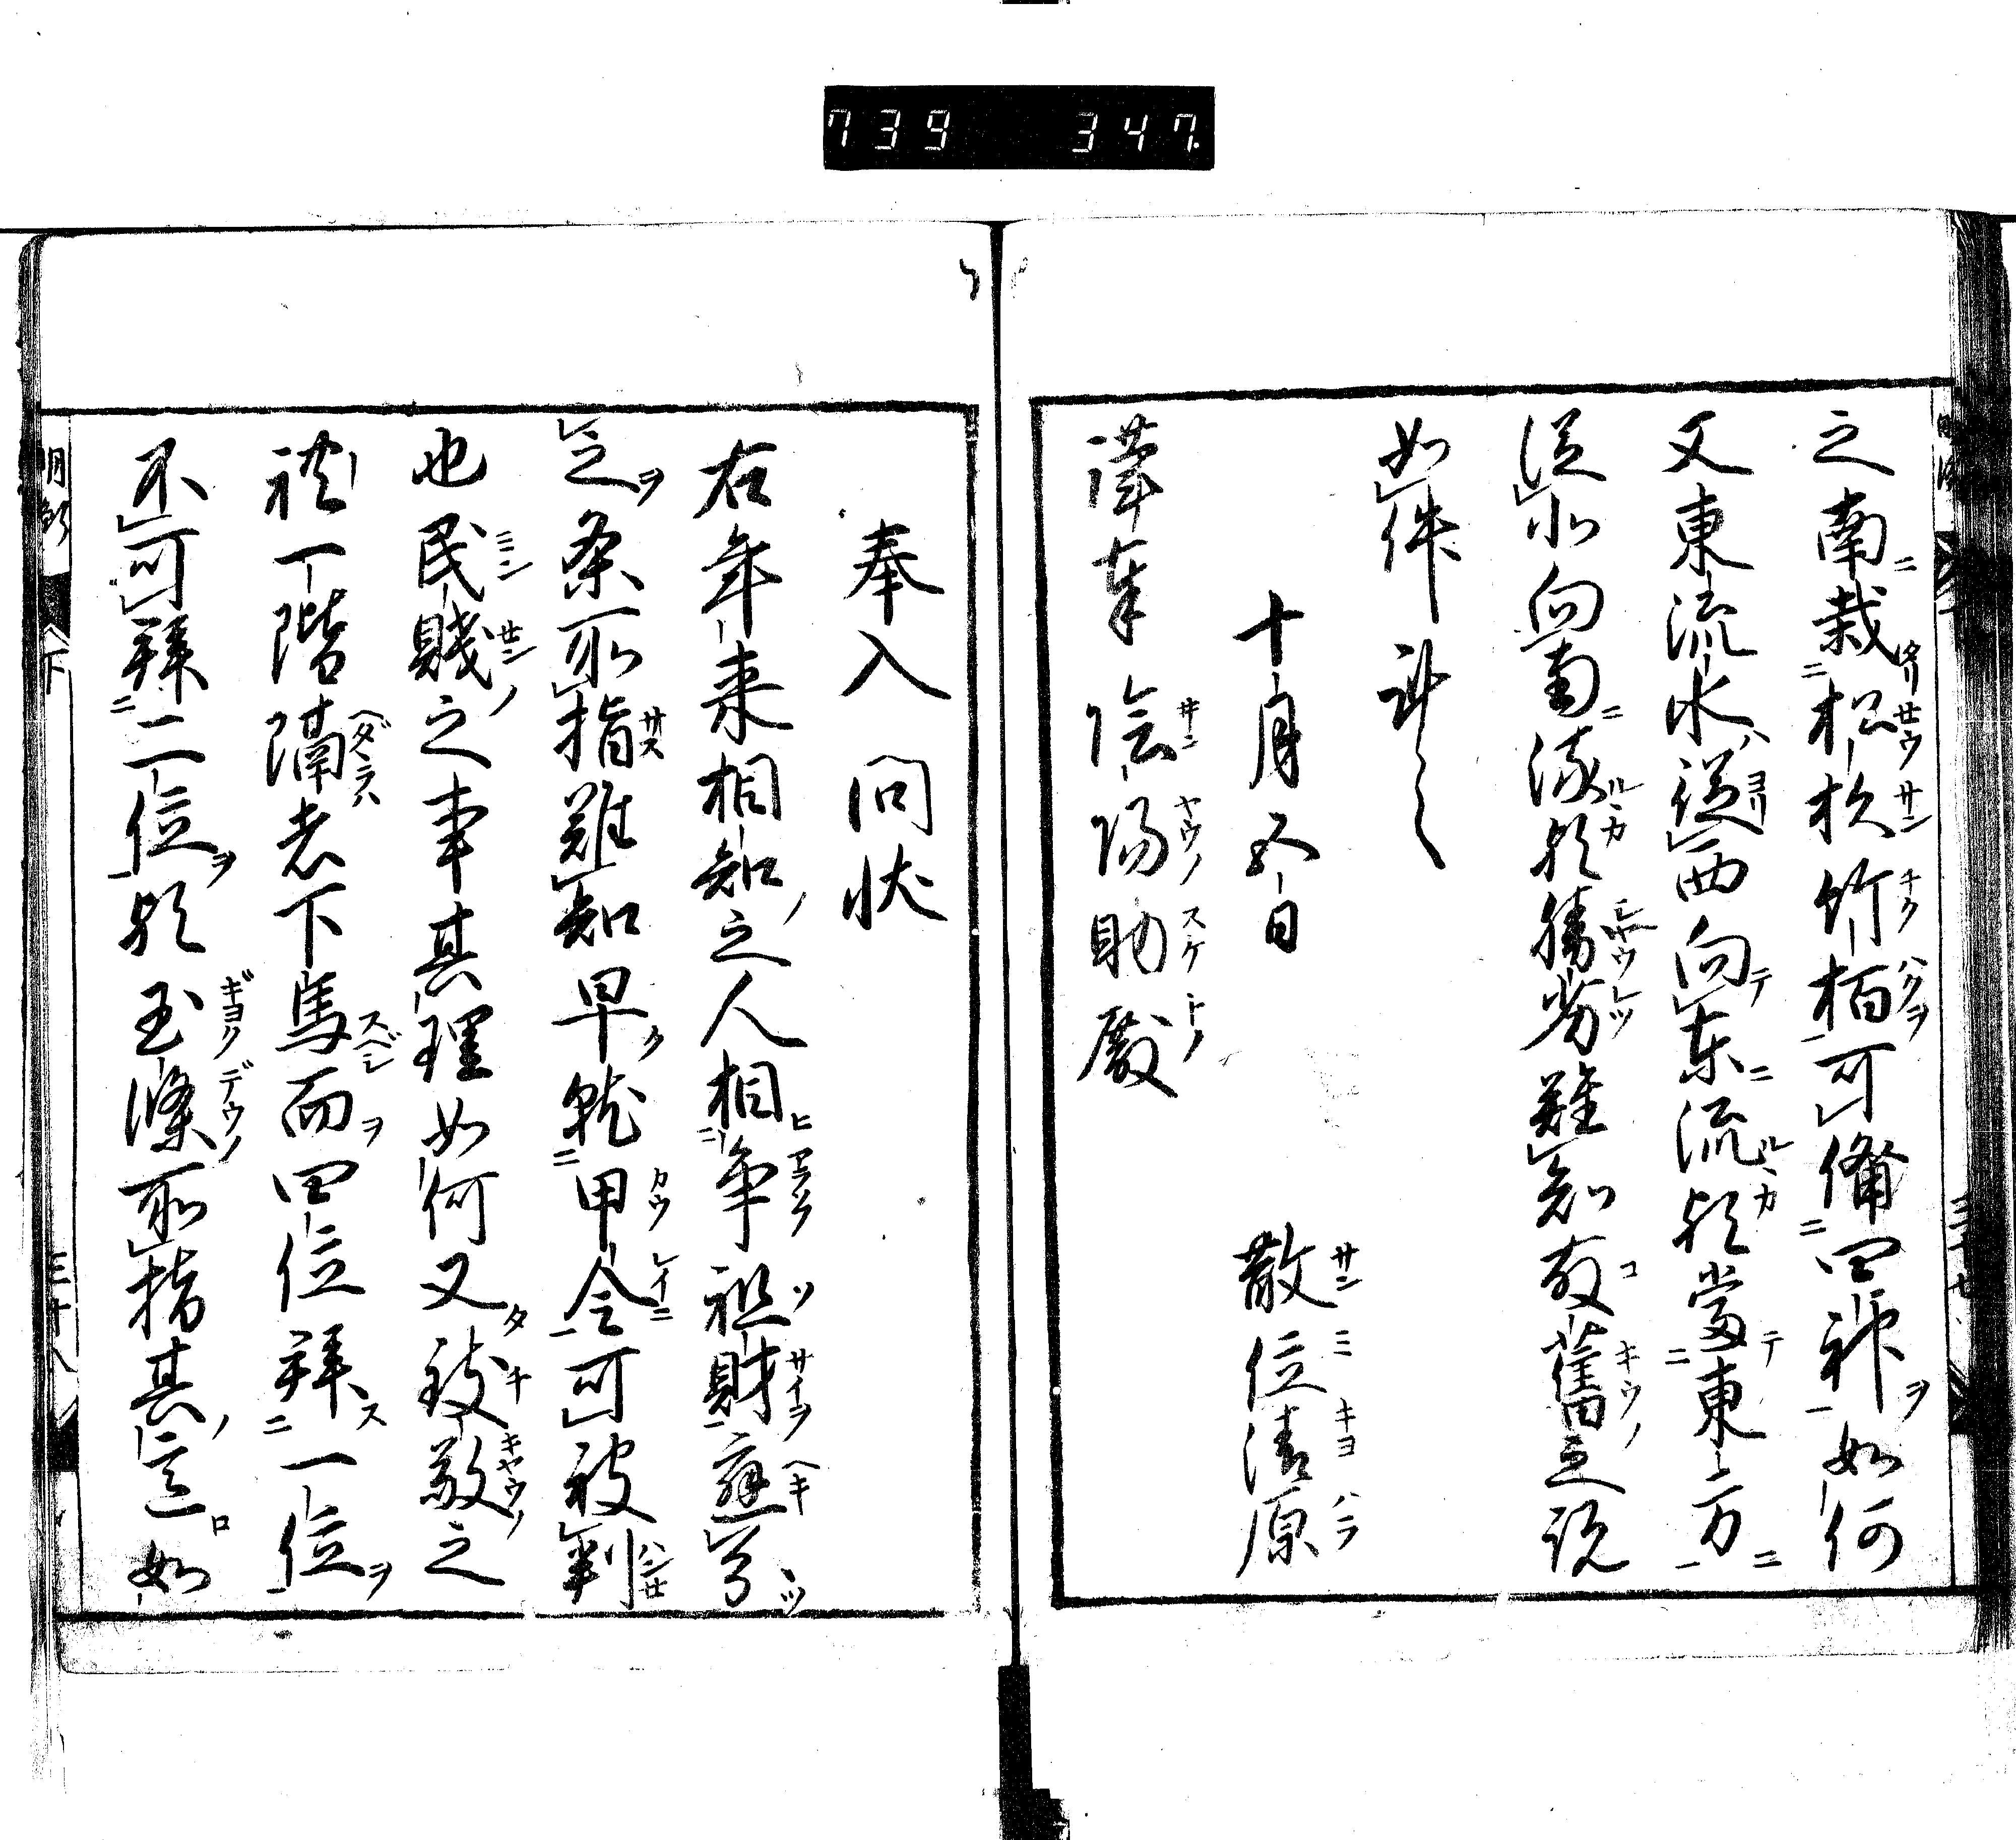 739 347
之南栽松杉竹栢可備四神如何
又東流水從西向東流歟當東方
從小向南流歟勝劣難知故舊之説
如件謹言
十月五日 散位清原
謹奉 陰陽助殿
奉入 問状
右年来相知之人相争祖財遊
之条所指難知早就甲令可被判
也民賤之事其理如何又致敬之
礼一階隔者下馬而四位拜一位
不可拜二位歟玉條所指其定如
明
下
三十八